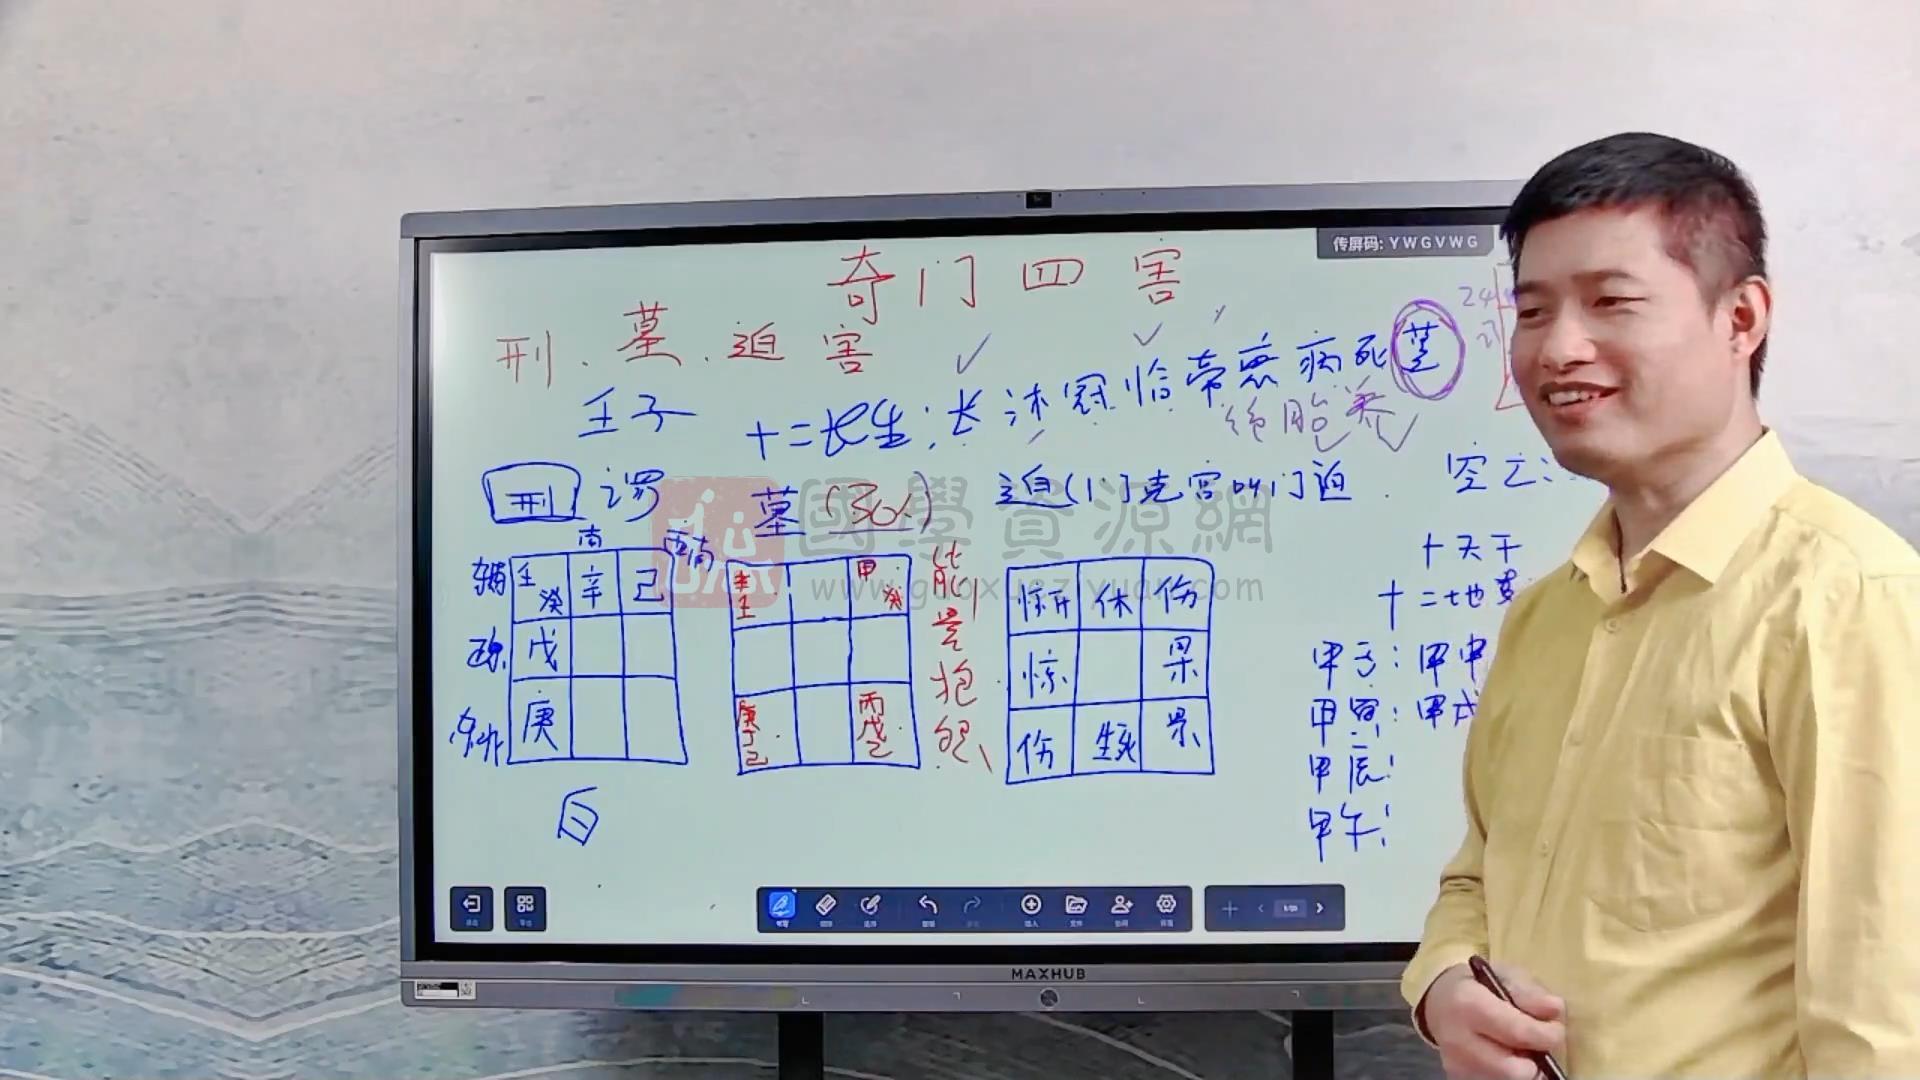 传屏码: YWGVWG
奇门四害
刑.墓.迫害
壬子
十二长生:长沐冠临帝衰病死墓
绝胎养
刑
墓(30%)
迫(门克宫叫门迫
空亡:
國學資源網
www.guoxueziyuan.com
南
西南
壬癸 辛 己
戊
庚
甲癸
丙戊乙
能量抱怨
惊开 休 伤
惊 景
伤 生死 景
十天干
十二地支
甲子:甲申
甲寅:甲戌
甲辰:
甲午:
MAXHUB